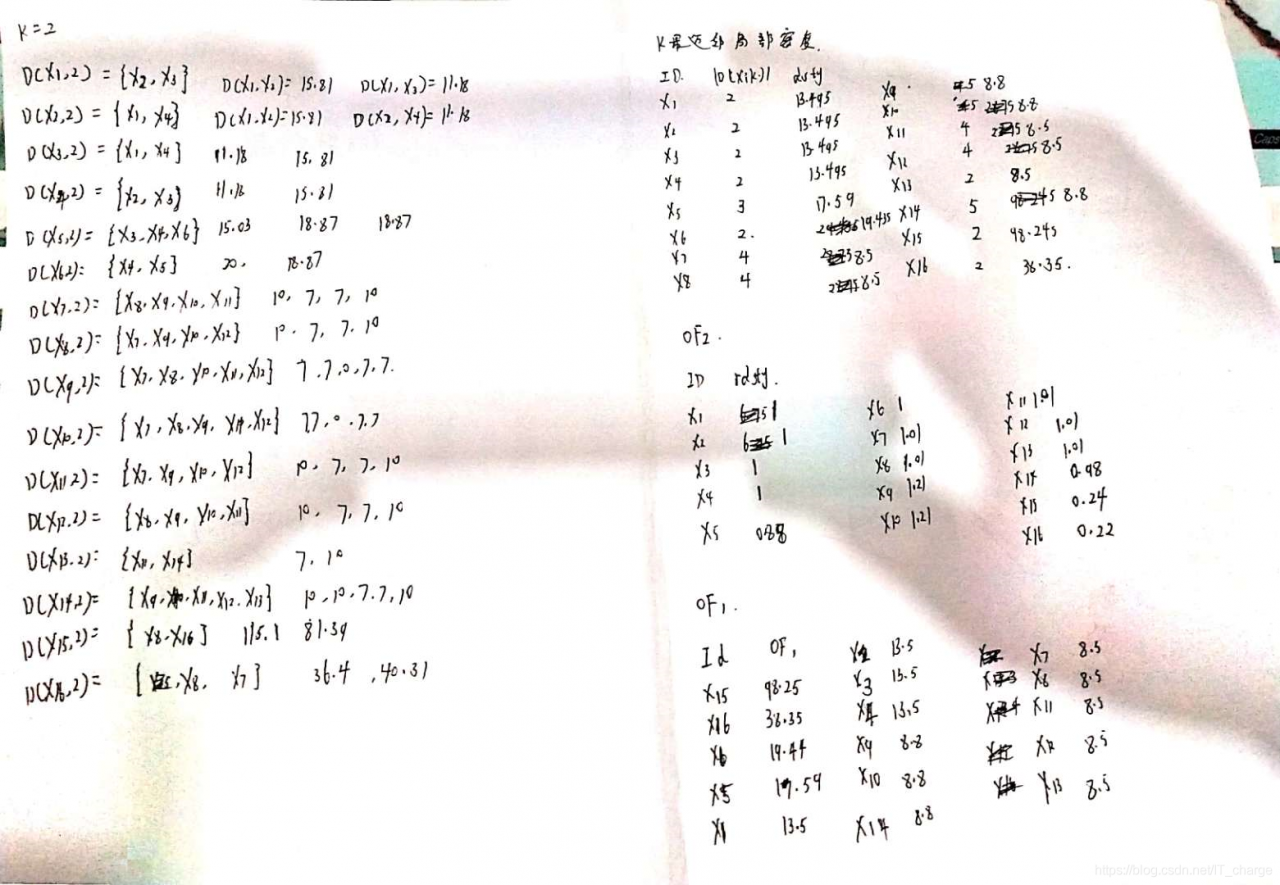 K=2
D(X1,2) = {X2, X3} D(X1,X2)= 15.81 D(X1,X3)= 11.18
D(X2,2) = {X1, X4} D(X1,X2)=15.81 D(X2,X4)= 11.18
D(X3,2) = {X1, X4} 11.18 15.81
D(X4,2) = {X2, X3} 11.18 15.81
D(X5,2)= {X3,X4,X6} 15.03 18.87 18.87
D(X6,2)= {X4, X5} 20. 18.87
D(X7,2)= {X8, X9, X10, X11} 10, 7, 7, 10
D(X8,2)= {X7, X9, X10, X12} 10. 7, 7. 10
D(X9,2)= {X7, X8, X10, X11, X12} 7.7,0,7,7.
D(X10,2)= {X7, X8, X9, X11, X12} 7,7,0,7,7
D(X11,2)= {X7, X9, X10, X12} 10, 7, 7, 10
D(X12,2)= {X8, X9, X10, X11} 10, 7, 7, 10
D(X13,2)= {X11, X14} 7, 10
D(X14,2)= {X9, X10, X11, X12, X13} 10,10,7,7,10
D(X15,2)= {X8, X16} 115.1 81.39
D(X16,2)= {X8, X7} 36.4 ,40.31
K最近邻局部密度.
ID. |D(Xi,k)| dsty
X1 2 13.495 X9 5 8.8
X2 2 13.495 X10 5 8.8
X3 2 13.495 X11 4 8.5
X4 2 13.495 X12 4 8.5
X5 3 17.59 X13 2 8.5
X6 2. 19.435 X14 5 8.8
X7 4 8.5 X15 2 98.245
X8 4 8.5 X16 2 38.35.
OF2.
ID rdsty.
X1 1 X6 1 X11 1.01
X2 1 X7 1.01 X12 1.01
X3 1 X8 1.01 X13 1.01
X4 1 X9 1.21 X14 0.98
X5 0.88 X10 1.21 X15 0.24
X16 0.22
OF1.
Id OF1 X2 13.5 X7 8.5
X15 98.25 X3 13.5 X8 8.5
X16 38.35 X4 13.5 X11 8.5
X6 19.44 X9 8.8 X12 8.5
X5 17.59 X10 8.8 X13 8.5
X1 13.5 X14 8.8
https://blog.csdn.net/IT_charge